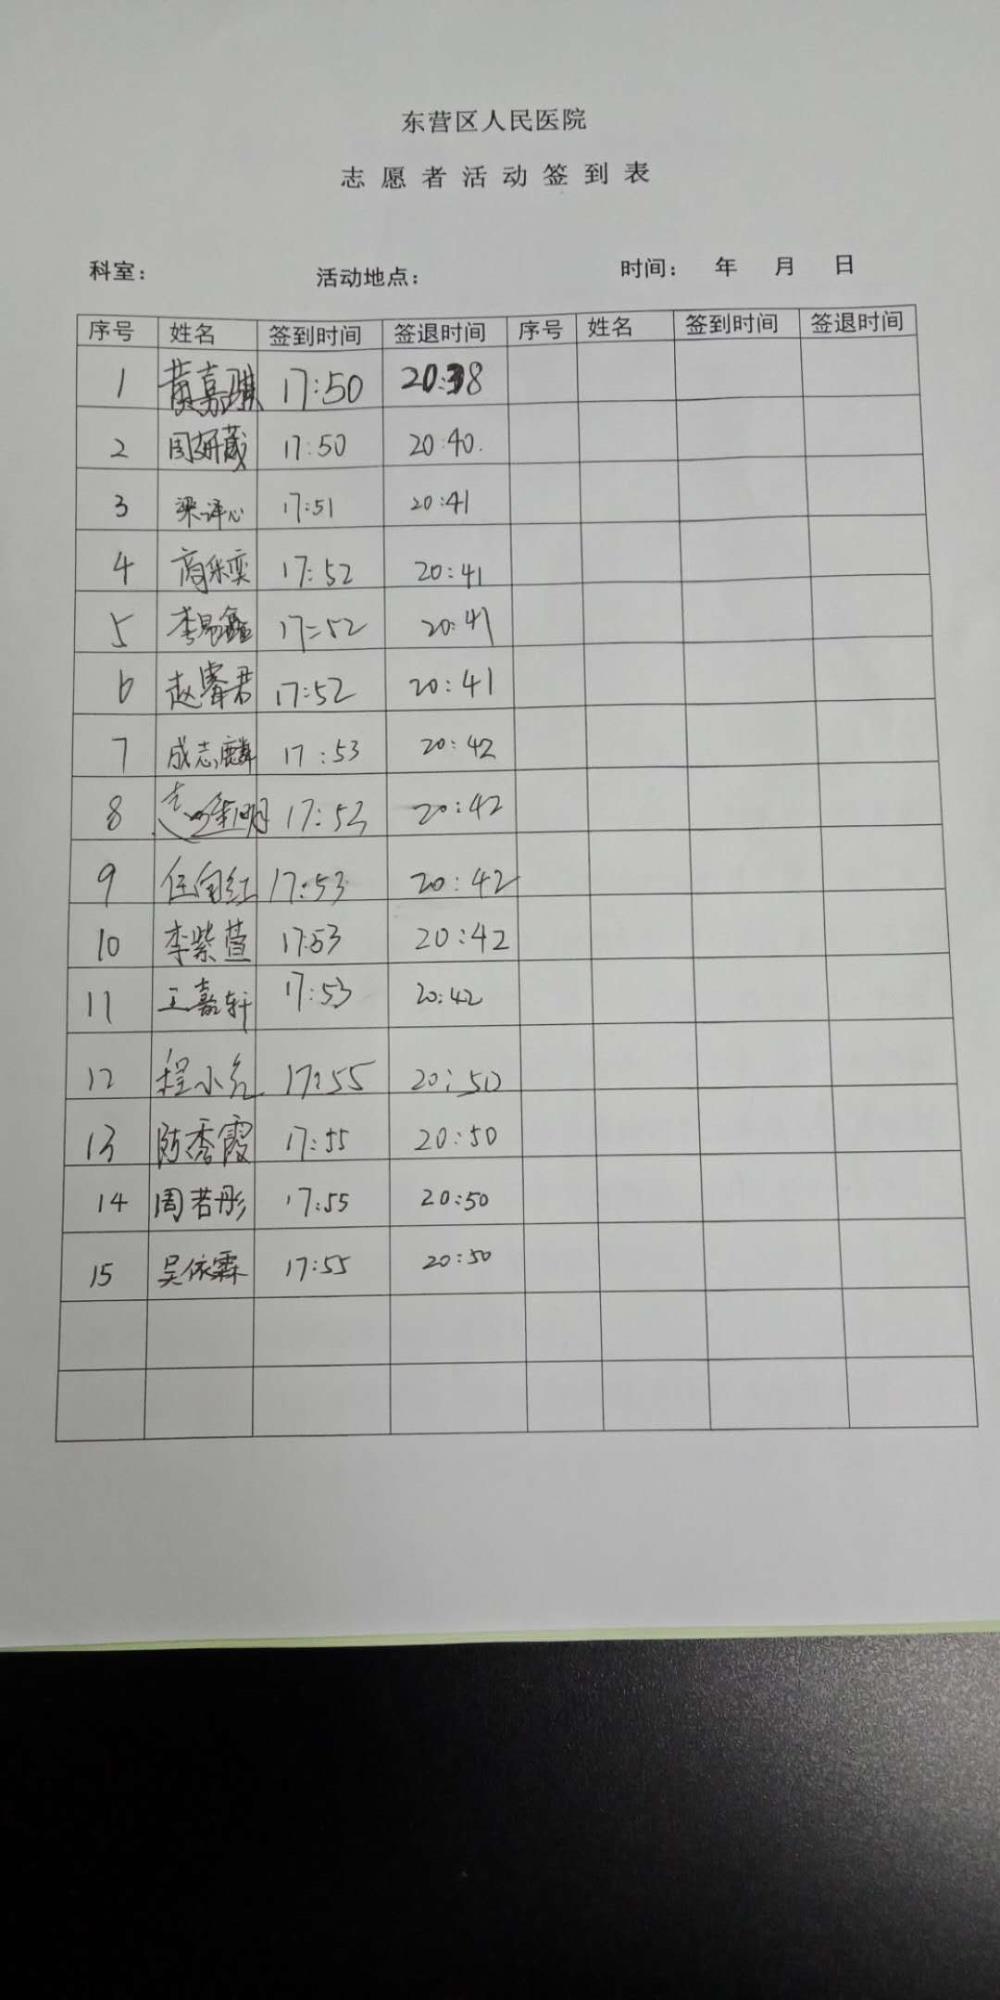 东营区人民医院
志愿者活动签到表
科室： 活动地点： 时间： 年 月 日
序号 姓名 签到时间 签退时间 序号 姓名 签到时间 签退时间
1 黄嘉琪 17:50 20:38
2 周妍葳 17:50 20:40.
3 梁译心 17:51 20:41
4 高采奕 17:52 20:41
5 李易鑫 17:52 20:41
6 赵睿君 17:52 20:41
7 成志麟 17:53 20:42
8 17:53 20:42
9 任向红 17:53 20:42
10 李紫萱 17:53 20:42
11 王嘉轩 17:53 20:42
12 程小 17:55 20:50
13 陈秀霞 17:55 20:50
14 周若彤 17:55 20:50
15 吴依霖 17:55 20:50